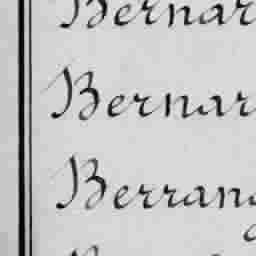 Bernar
Bernar
Berran